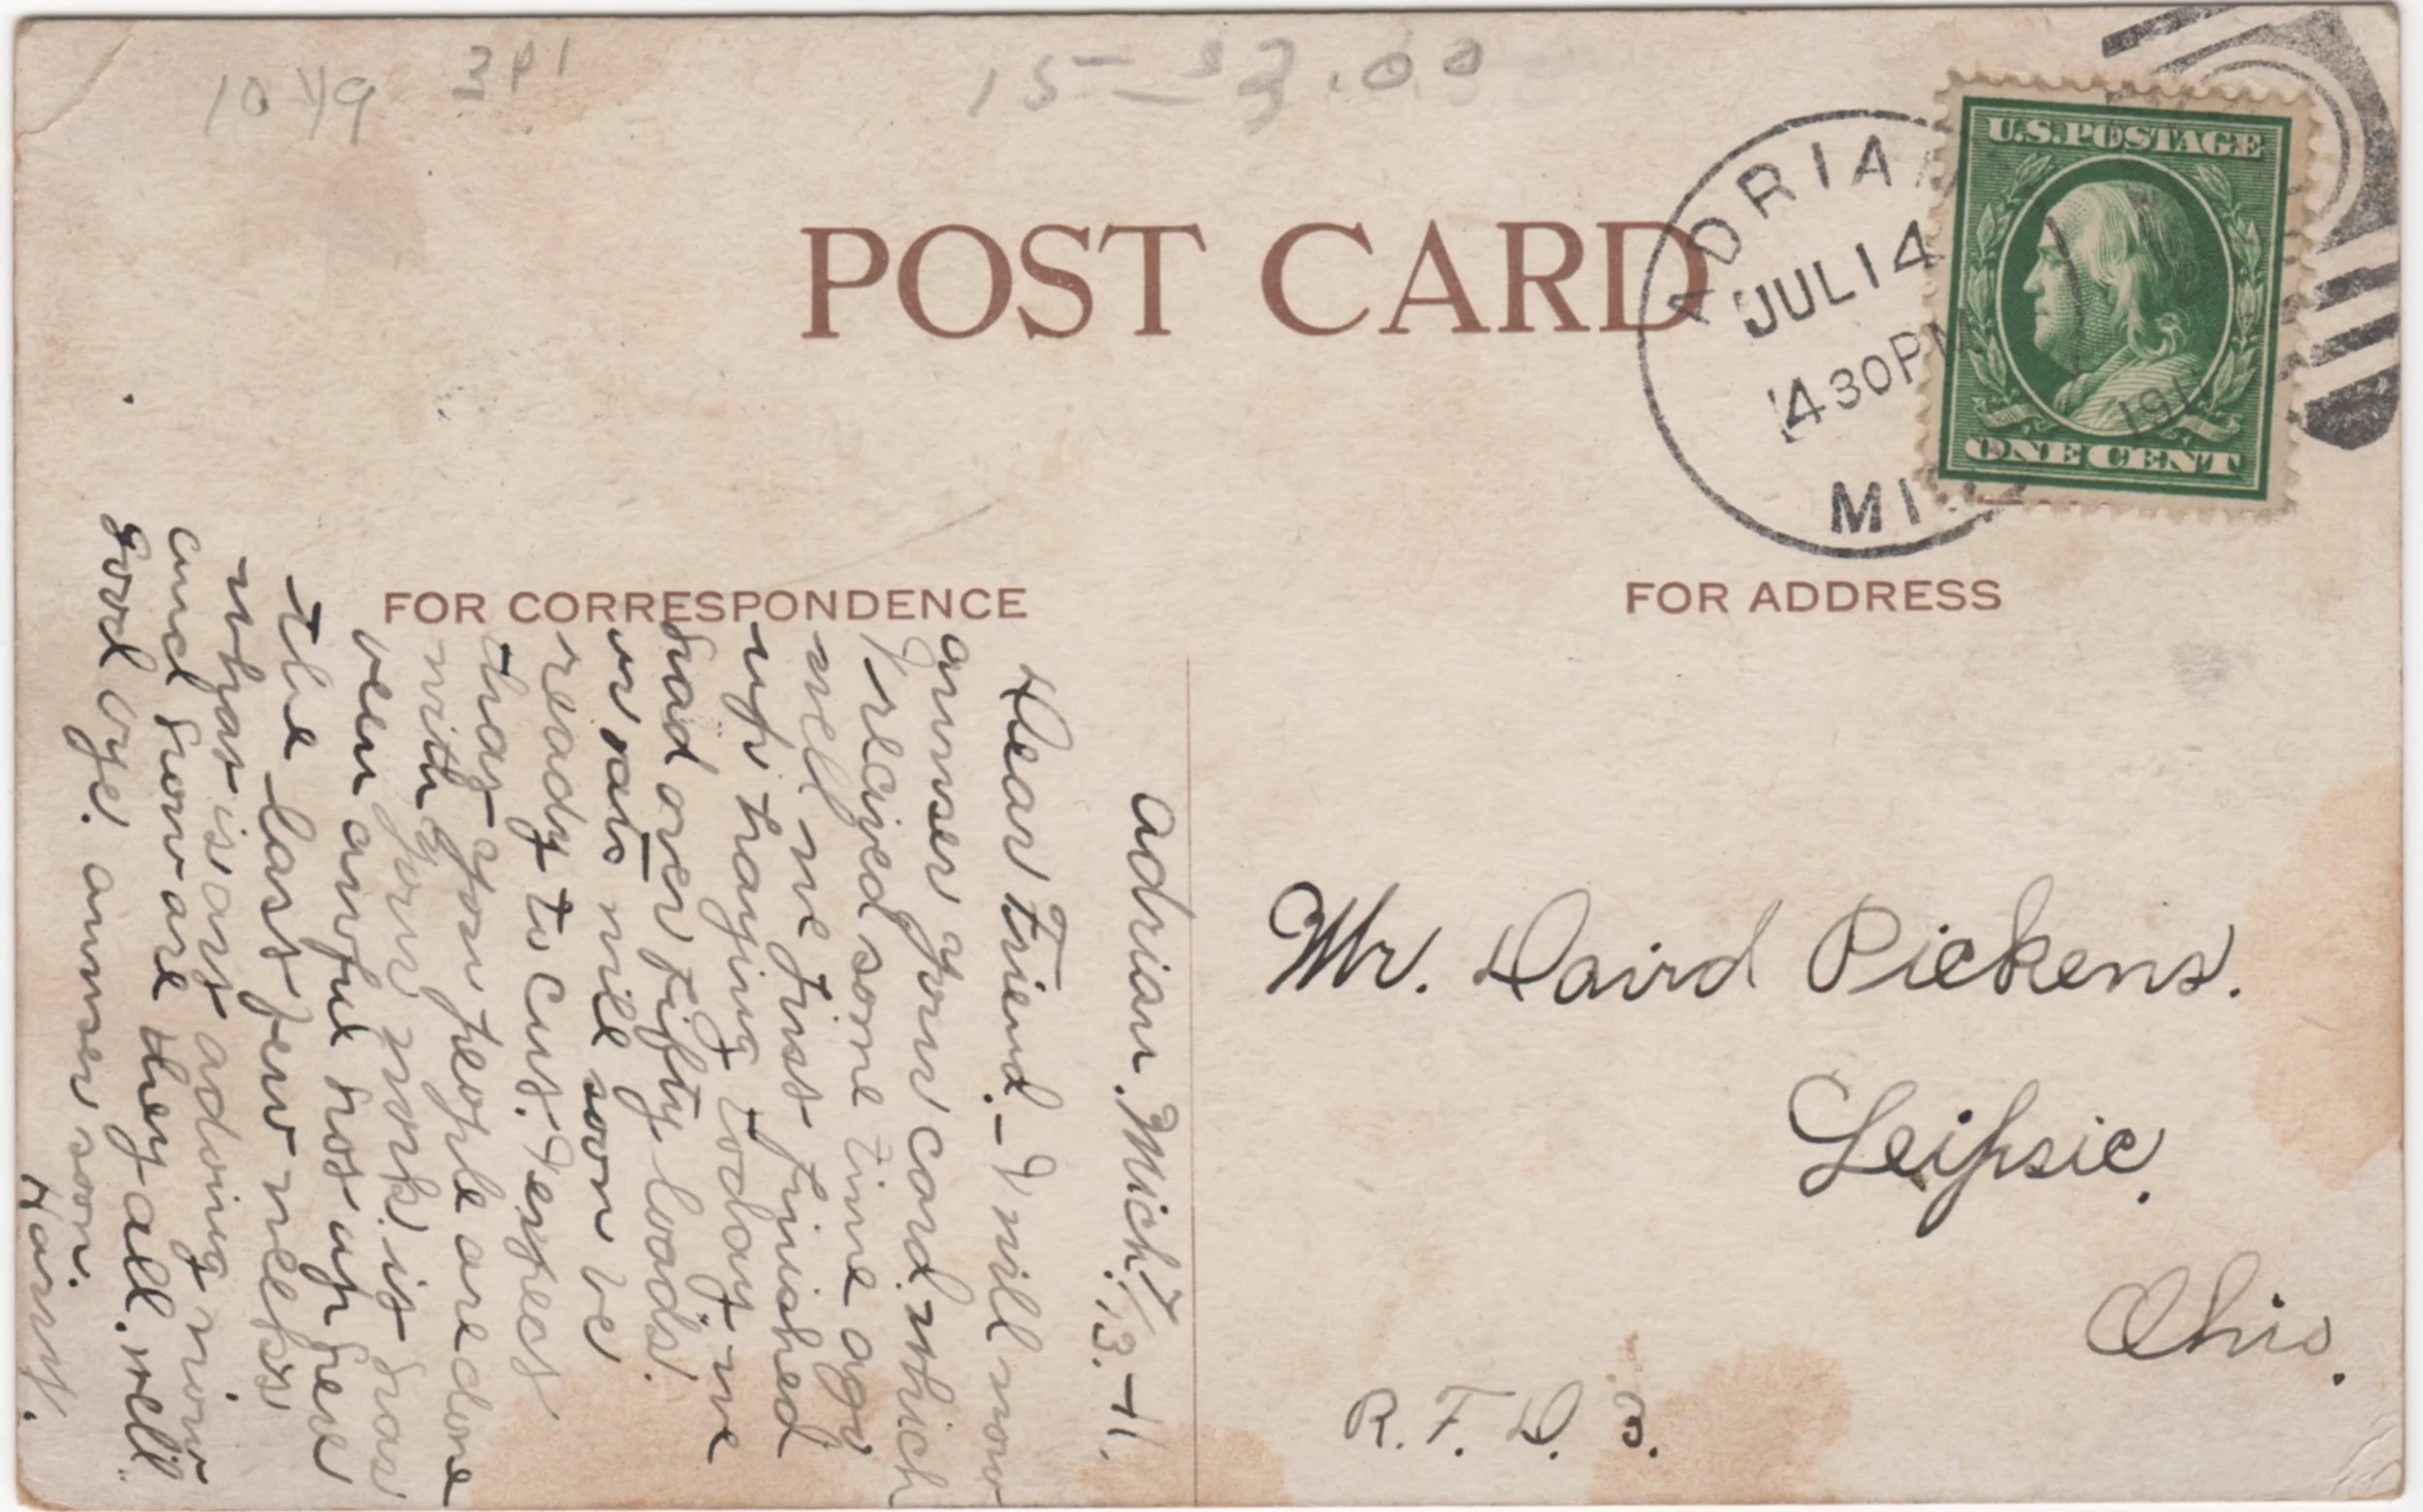 1049 3P1
15- $3.00
U.S. POSTAGE
ONE CENT
ADRIAN
JUL 14
430PM
1911
MICH
POST CARD
FOR CORRESPONDENCE
FOR ADDRESS
Adrian. Mich. 7/13.-11.
Dear Friend.- I will now
answer your card which
I recieved some time ago
well we just finished
up haying today. we
had over fifty loads.
our oats will soon be
ready to cut. I expect
that you people are done
with your work. it has
been awful hot up here
the last few weeks
what is art adoing now
and how are they all. well
good bye. answer soon.
Harry.
Mr. David Pickens.
Leipsic,
Ohio.
R. F. D. 3.